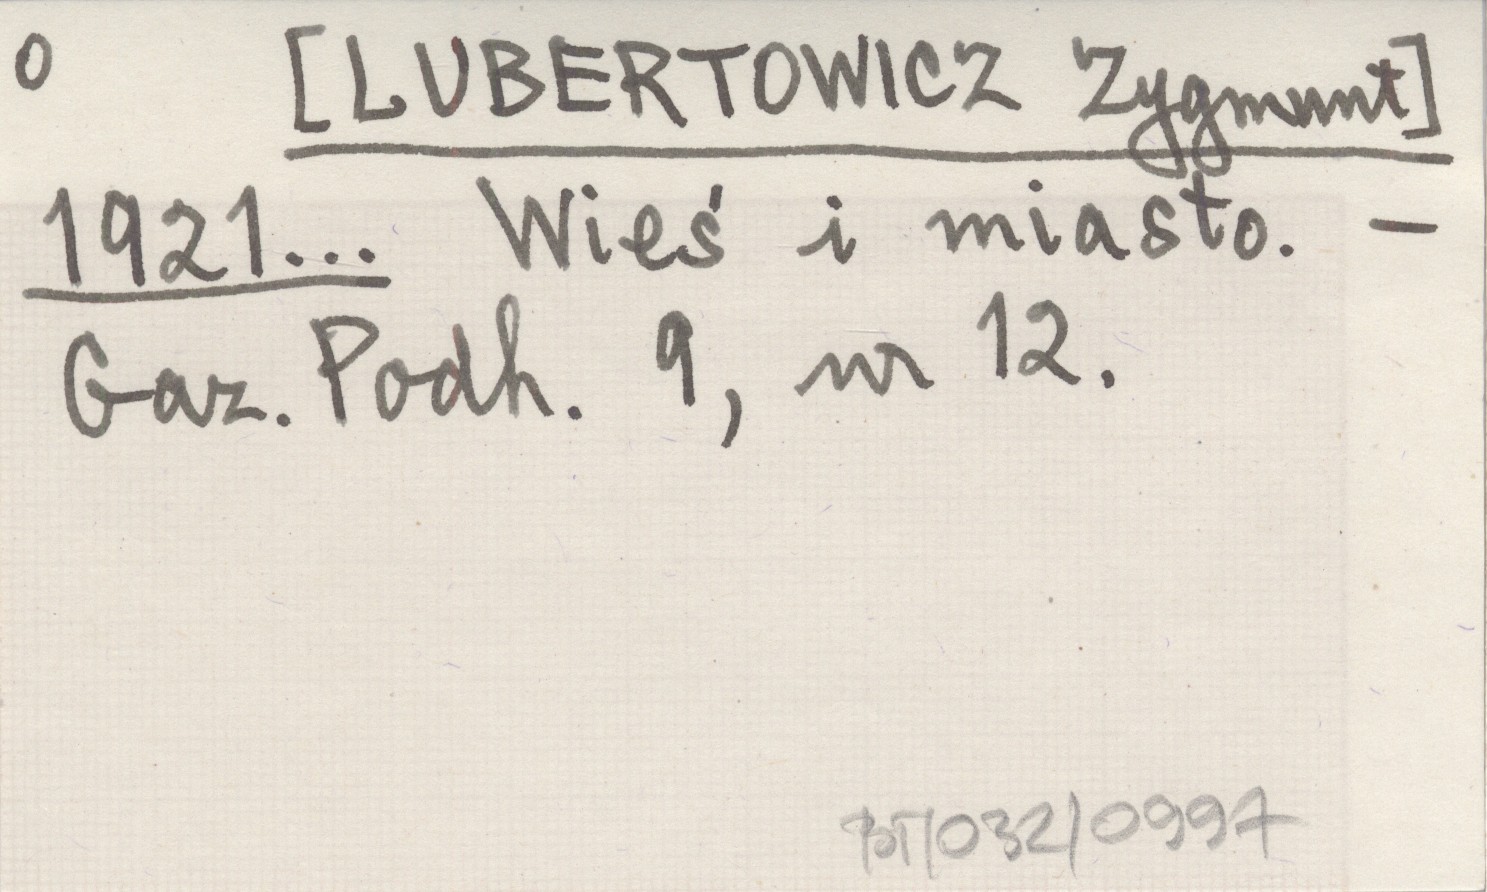 o [LUBERTOWICZ Zygmunt]
1921... Wieś i miasto. –
Gaz. Podh. 9, nr 12.
BT/032/0997